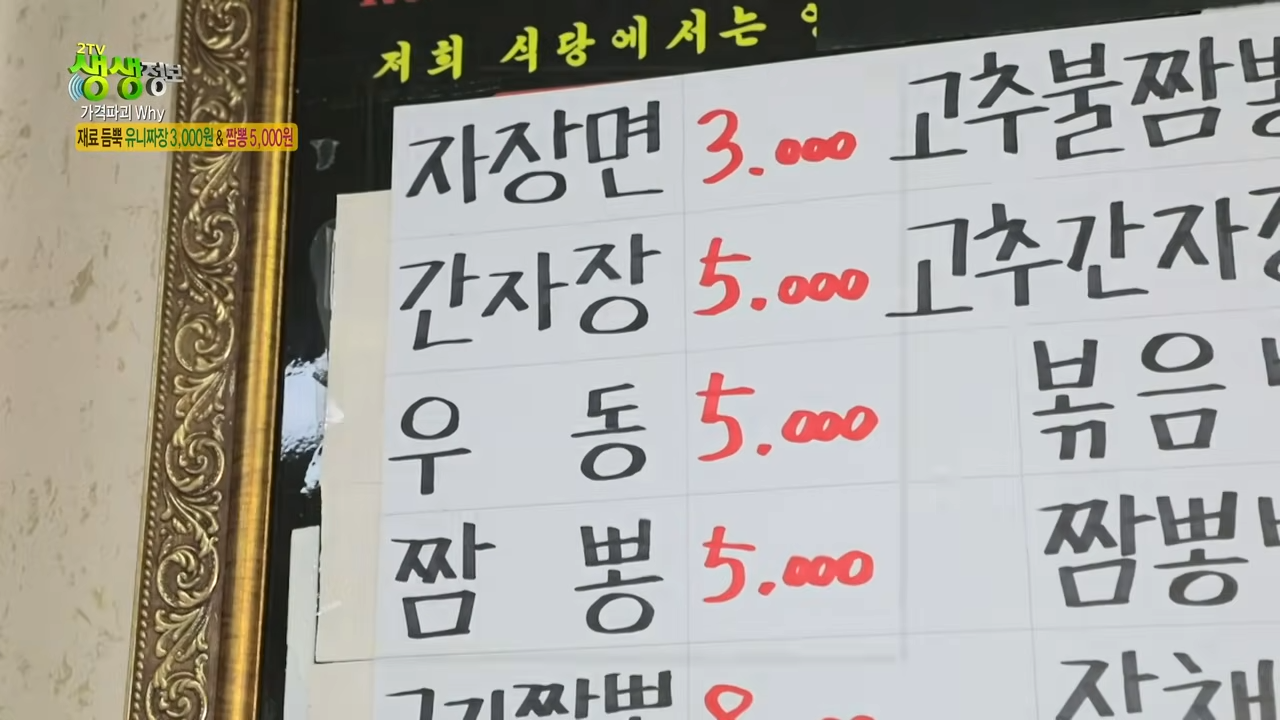 2TV
생생정보
가격파괴 Why
재료 듬뿍 유니짜장 3,000원 & 짬뽕 5,000원
저희 식당에서는
자장면 3.000 고추불짬뽕
간자장 5.000 고추간자장
우동 5.000 볶음
짬뽕 5.000 짬뽕